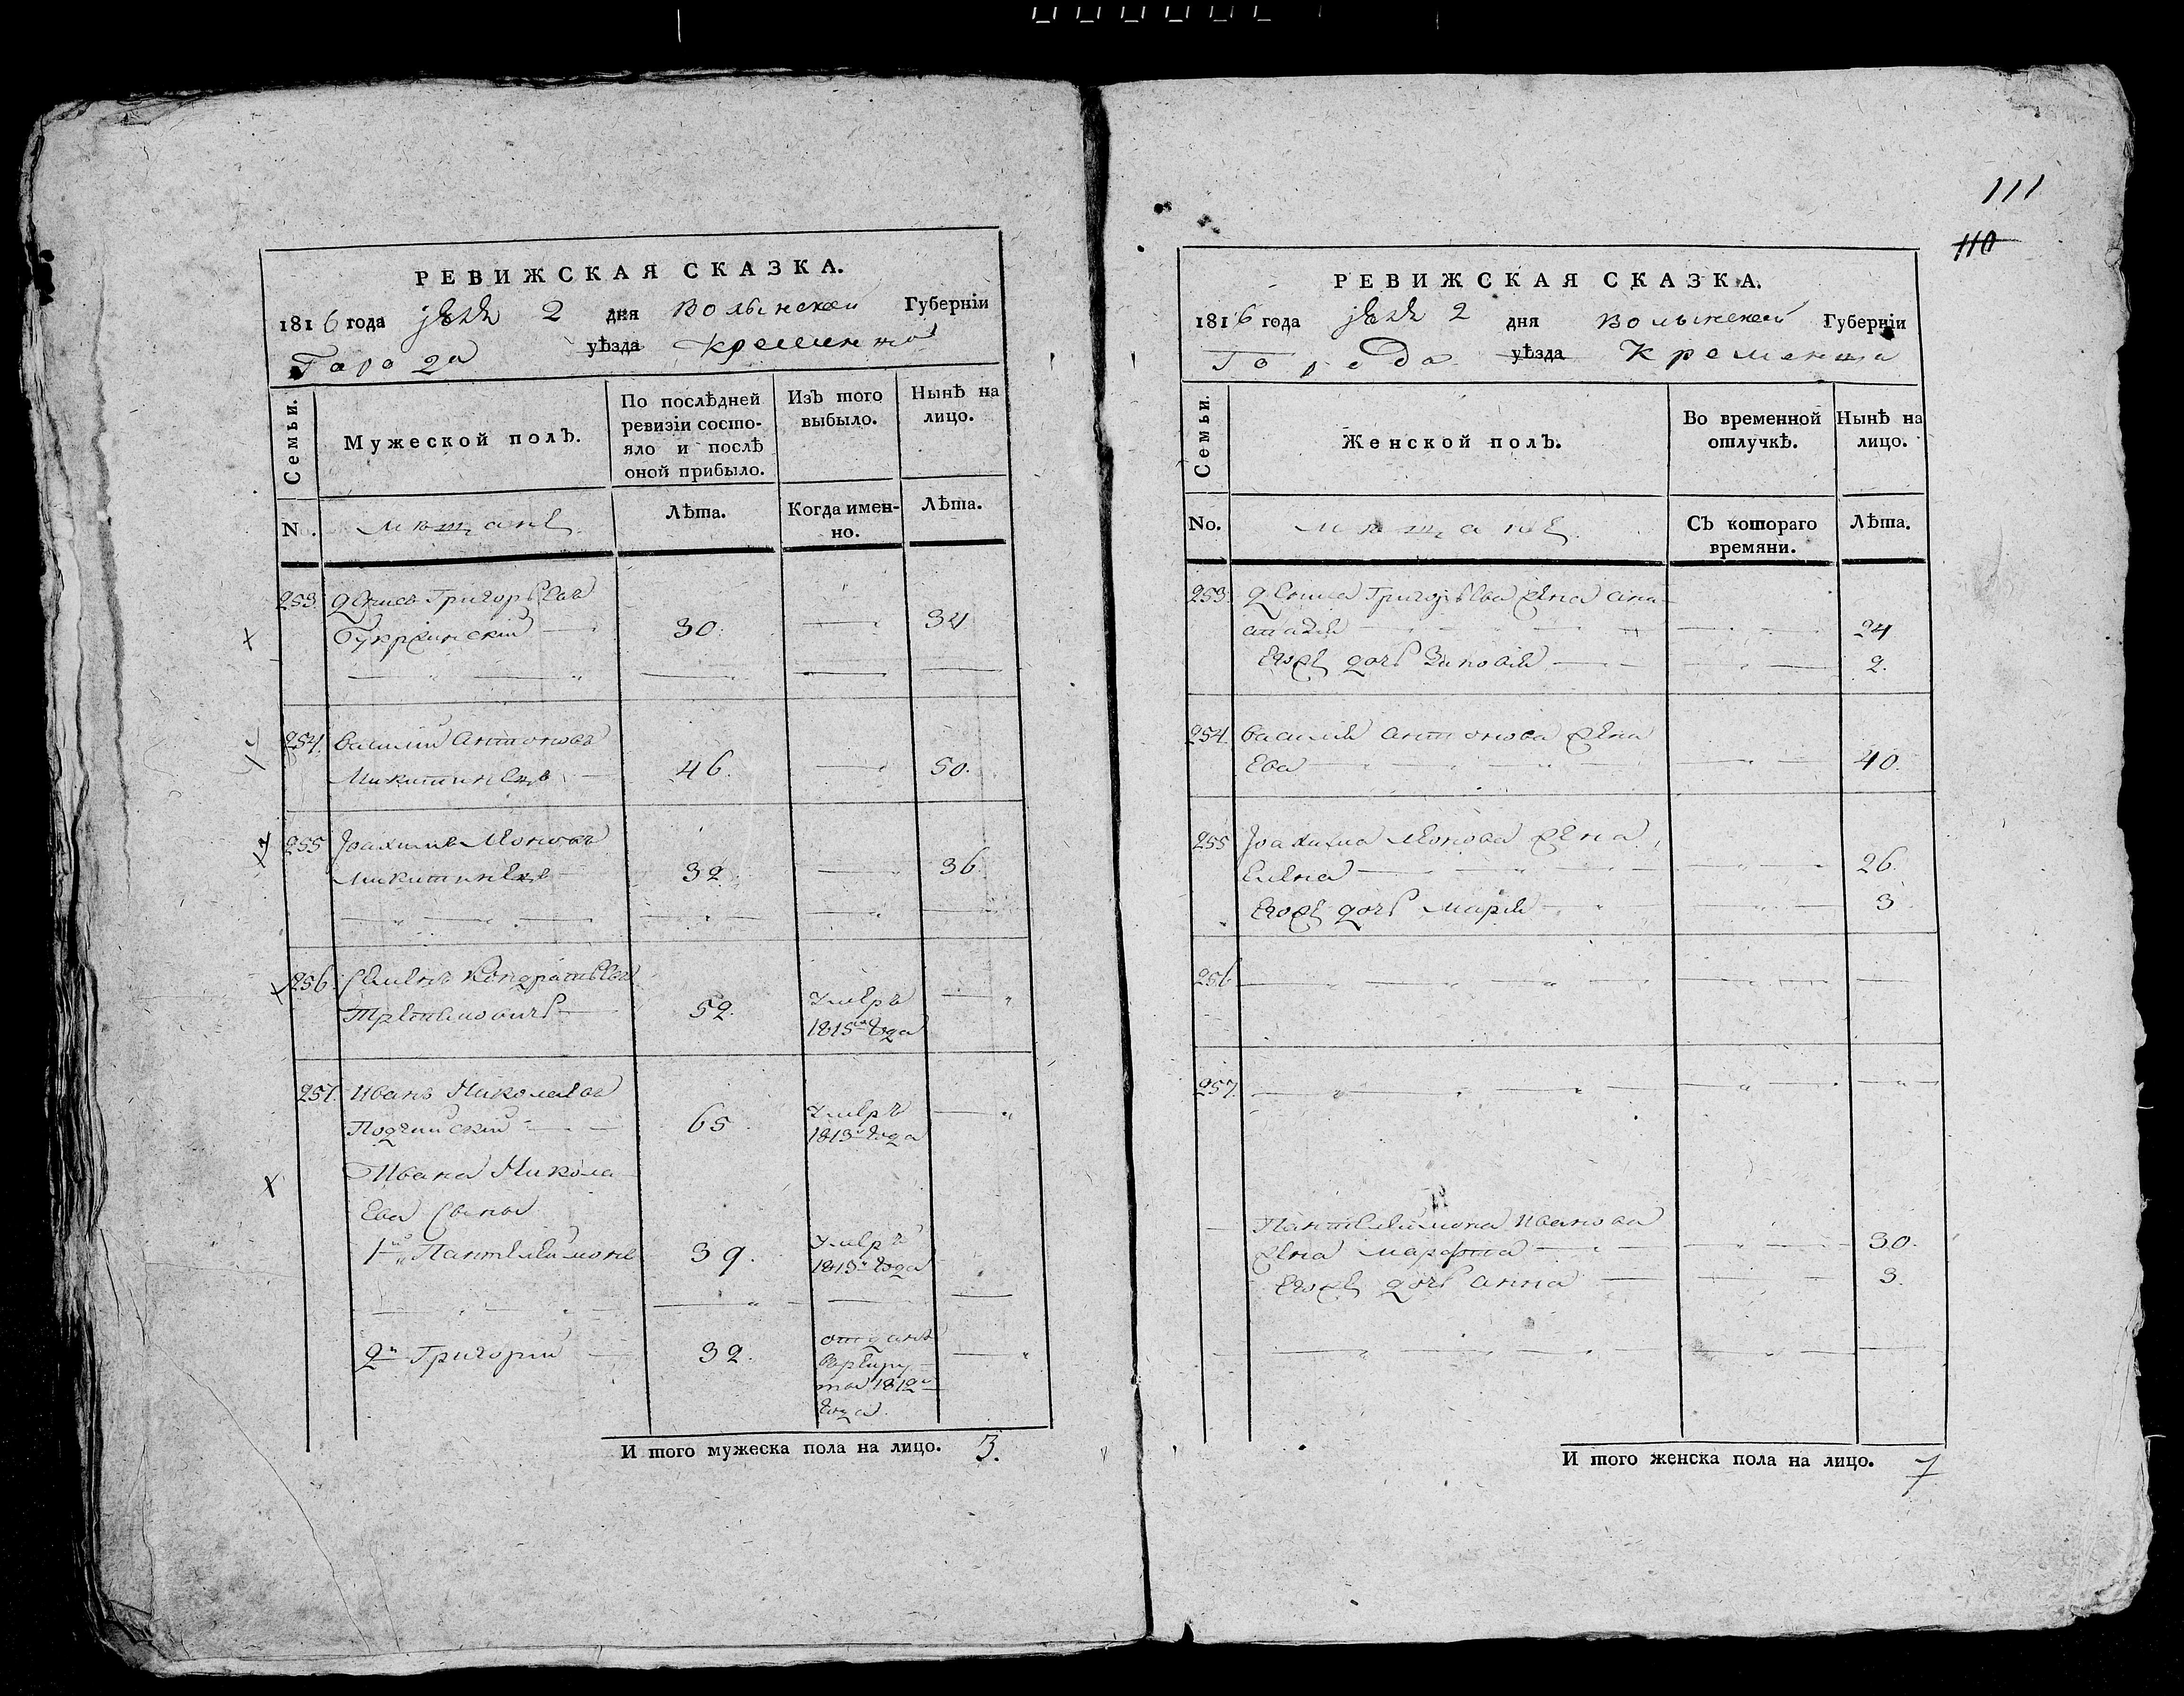 111
110
РЕВИЖСКАЯ СКАЗКА.
1816 года 2 дня Волынской Губерніи
Города уѣзда Кременца
Семьи. Мужеской полъ. По послѣдней ревизіи состояло и послѣ оной прибыло. Изъ того выбыло. Нынѣ на лицо.
N. мѣщане Лѣта. Когда именно. Лѣта.
253. Денисъ Григорьевъ
30. 34
254. Василий Антоновъ
Микитинецъ 46. 50.
255 Іоахимъ Леоновъ
Микитинецъ 32. 36.
256. Семенъ Кондратьевъ
52. Умеръ
1815го года
257. Иванъ Николаевъ
65. Умеръ
1813го года
Ивана Никола
ева сыны
1й Пантелеймонъ 39. Умеръ
1813го года
2й Григорий 32. отданъ
в рекру
ты 1812го
года.
И того мужеска пола на лицо. 3.
РЕВИЖСКАЯ СКАЗКА.
1816 года 2 дня Волынской Губерніи
Города уѣзда Кременца
Семьи. Женской полъ. Во временной отлучкѣ. Нынѣ на лицо.
No. мѣщане Съ котораго времяни. Лѣта.
253. Дениса Григорьева жена Ана
стазия 24
Егоже дочь Зиновия 2.
254. Василия Антонова жена
Ева 40.
255 Іоахима Леонова жена
Елена 26.
Егоже дочь Мария 3
256
257.
Пантелеймона Иванова
жена Марфта 30.
Егоже дочь Анна 3.
И того женска пола на лицо. 7